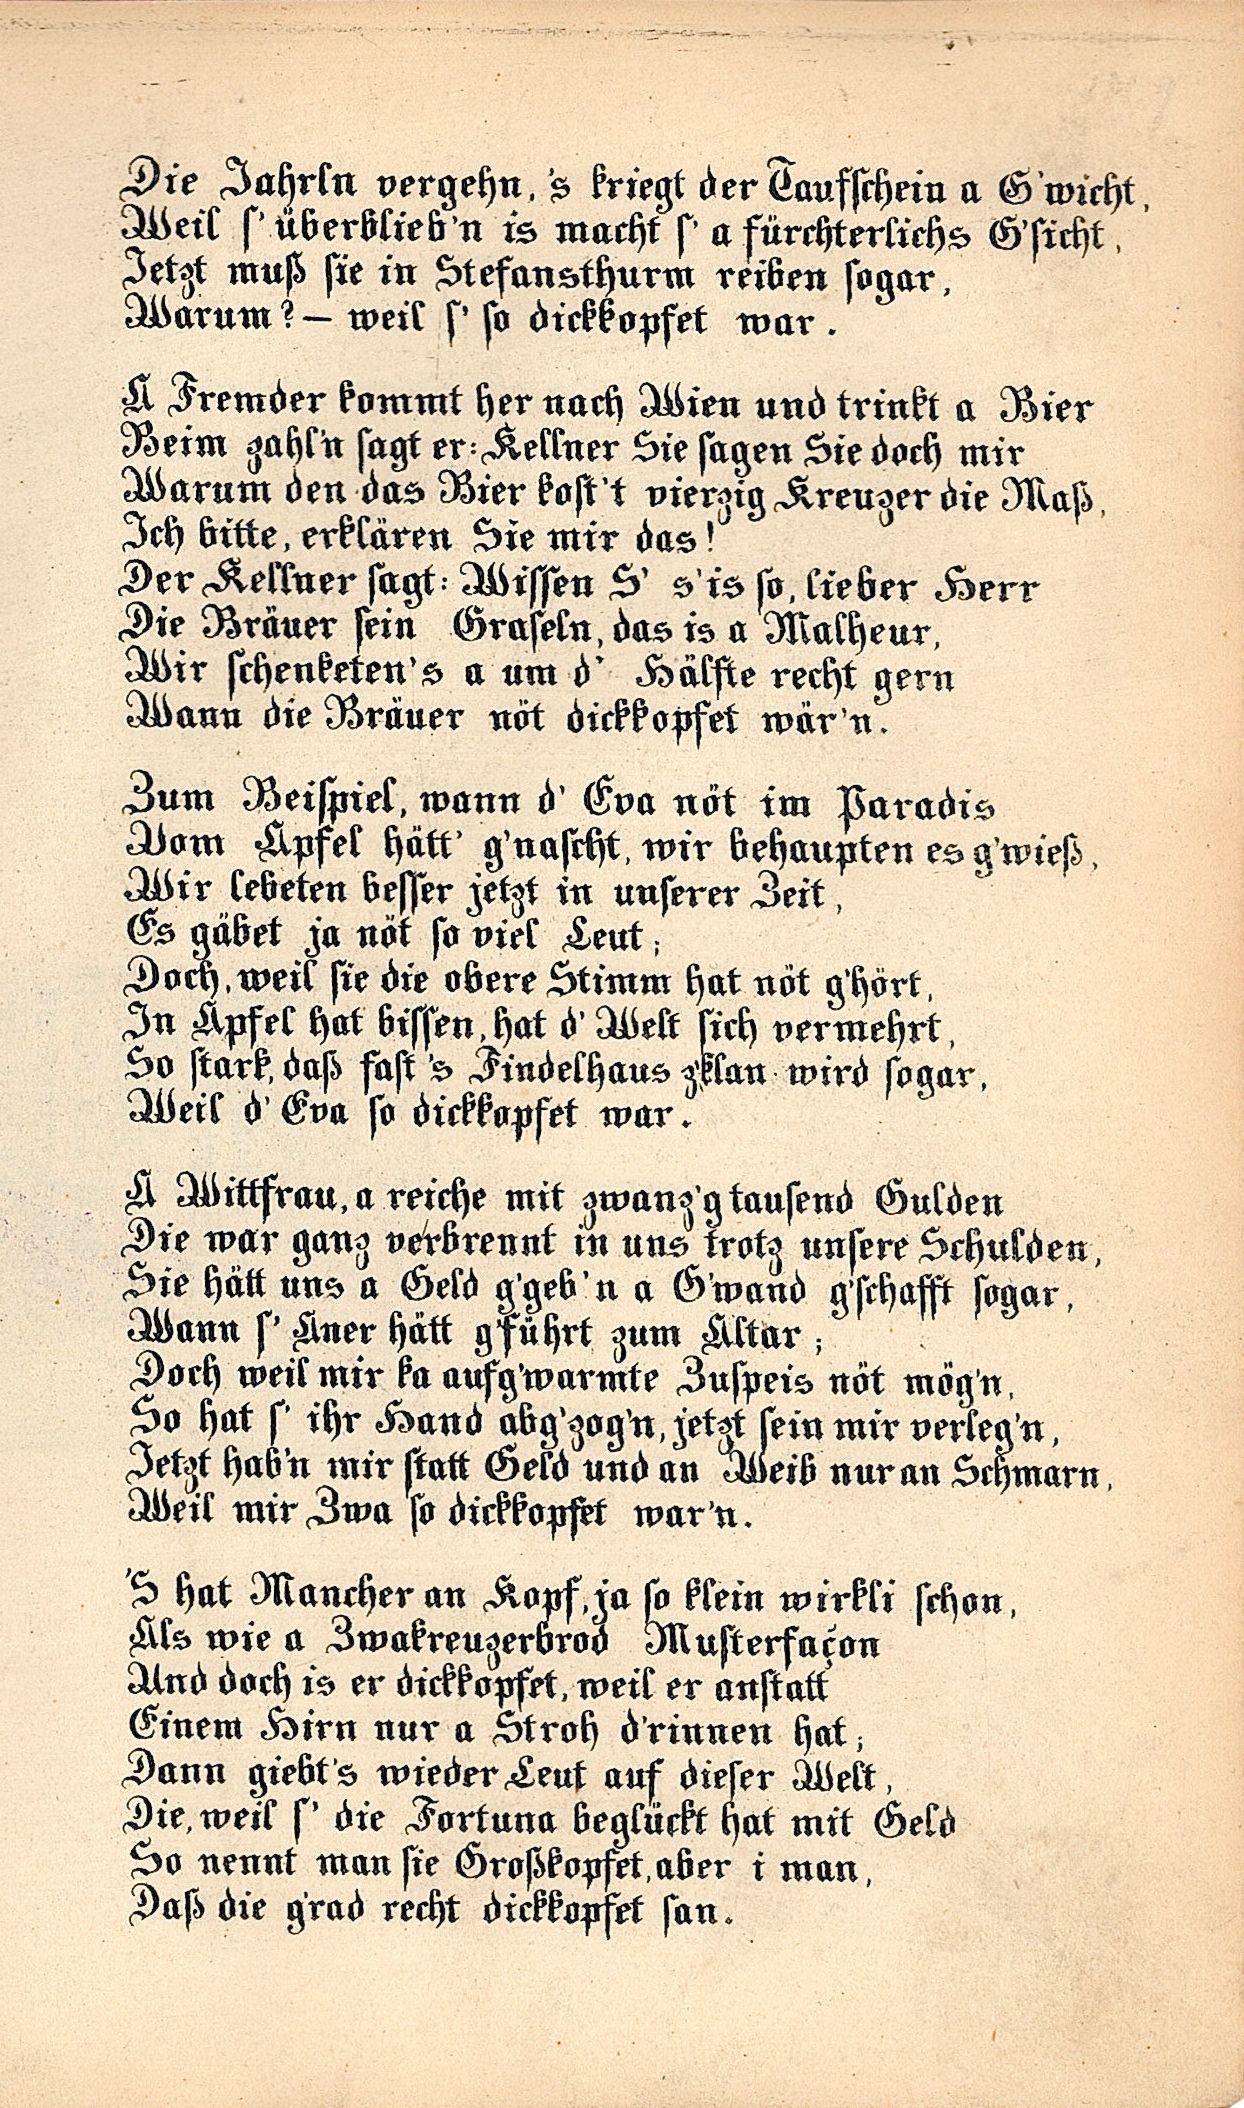 Die Jahrln vergehn, 's kriegt der Taufschein a G'wicht,
Weil s' überblieb'n is macht s' a fürchterlichs G'sicht,
Jetzt muß sie in Stefansthurm reiben sogar,
Warum? — weil s' so dickkopfet war.
A Fremder kommt her nach Wien und trinkt a Bier
Beim zahl'n sagt er: Kellner Sie sagen Sie doch mir
Warum den das Bier kost't vierzig Kreuzer die Maß,
Ich bitte, erklären Sie mir das!
Der Kellner sagt: Wissen S' s'is so, lieber Herr
Die Bräuer sein Graseln, das is a Malheur,
Wir schenketen's a um d' Hälfte recht gern
Wann die Bräuer nöt dickkopfet wär'n.
Zum Beispiel, wann d' Eva nöt im Paradis
Vom Apfel hätt' g'nascht, wir behaupten es g'wieß,
Wir lebeten besser jetzt in unserer Zeit,
Es gäbet ja nöt so viel Leut;
Doch, weil sie die obere Stimm hat nöt g'hört,
In Apfel hat bissen, hat d' Welt sich vermehrt,
So stark, daß fast 's Findelhaus z'klan wird sogar,
Weil d' Eva so dickkopfet war.
A Wittfrau, a reiche mit zwanz'g tausend Gulden
Die war ganz verbrennt in uns trotz unsere Schulden,
Sie hätt uns a Geld g'geb'n a G'wand g'schafft sogar,
Wann s' Aner hätt g'führt zum Altar;
Doch weil mir ka aufg'warmte Zuspeis nöt mög'n,
So hat s' ihr Hand abg'zog'n, jetzt sein mir verleg'n,
Jetzt hab'n mir statt Geld und an Weib nur an Schmarn,
Weil mir Zwa so dickkopfet war'n.
'S hat Mancher an Kopf, ja so klein wirkli schon,
Als wie a Zwakreuzerbrod Musterfaçon
Und doch is er dickkopfet, weil er anstatt
Einem Hirn nur a Stroh d'rinnen hat;
Dann giebt's wieder Leut auf dieser Welt,
Die, weil s' die Fortuna beglückt hat mit Geld
So nennt man sie Großkopfet, aber i man,
Daß die g'rad recht dickkopfet san.